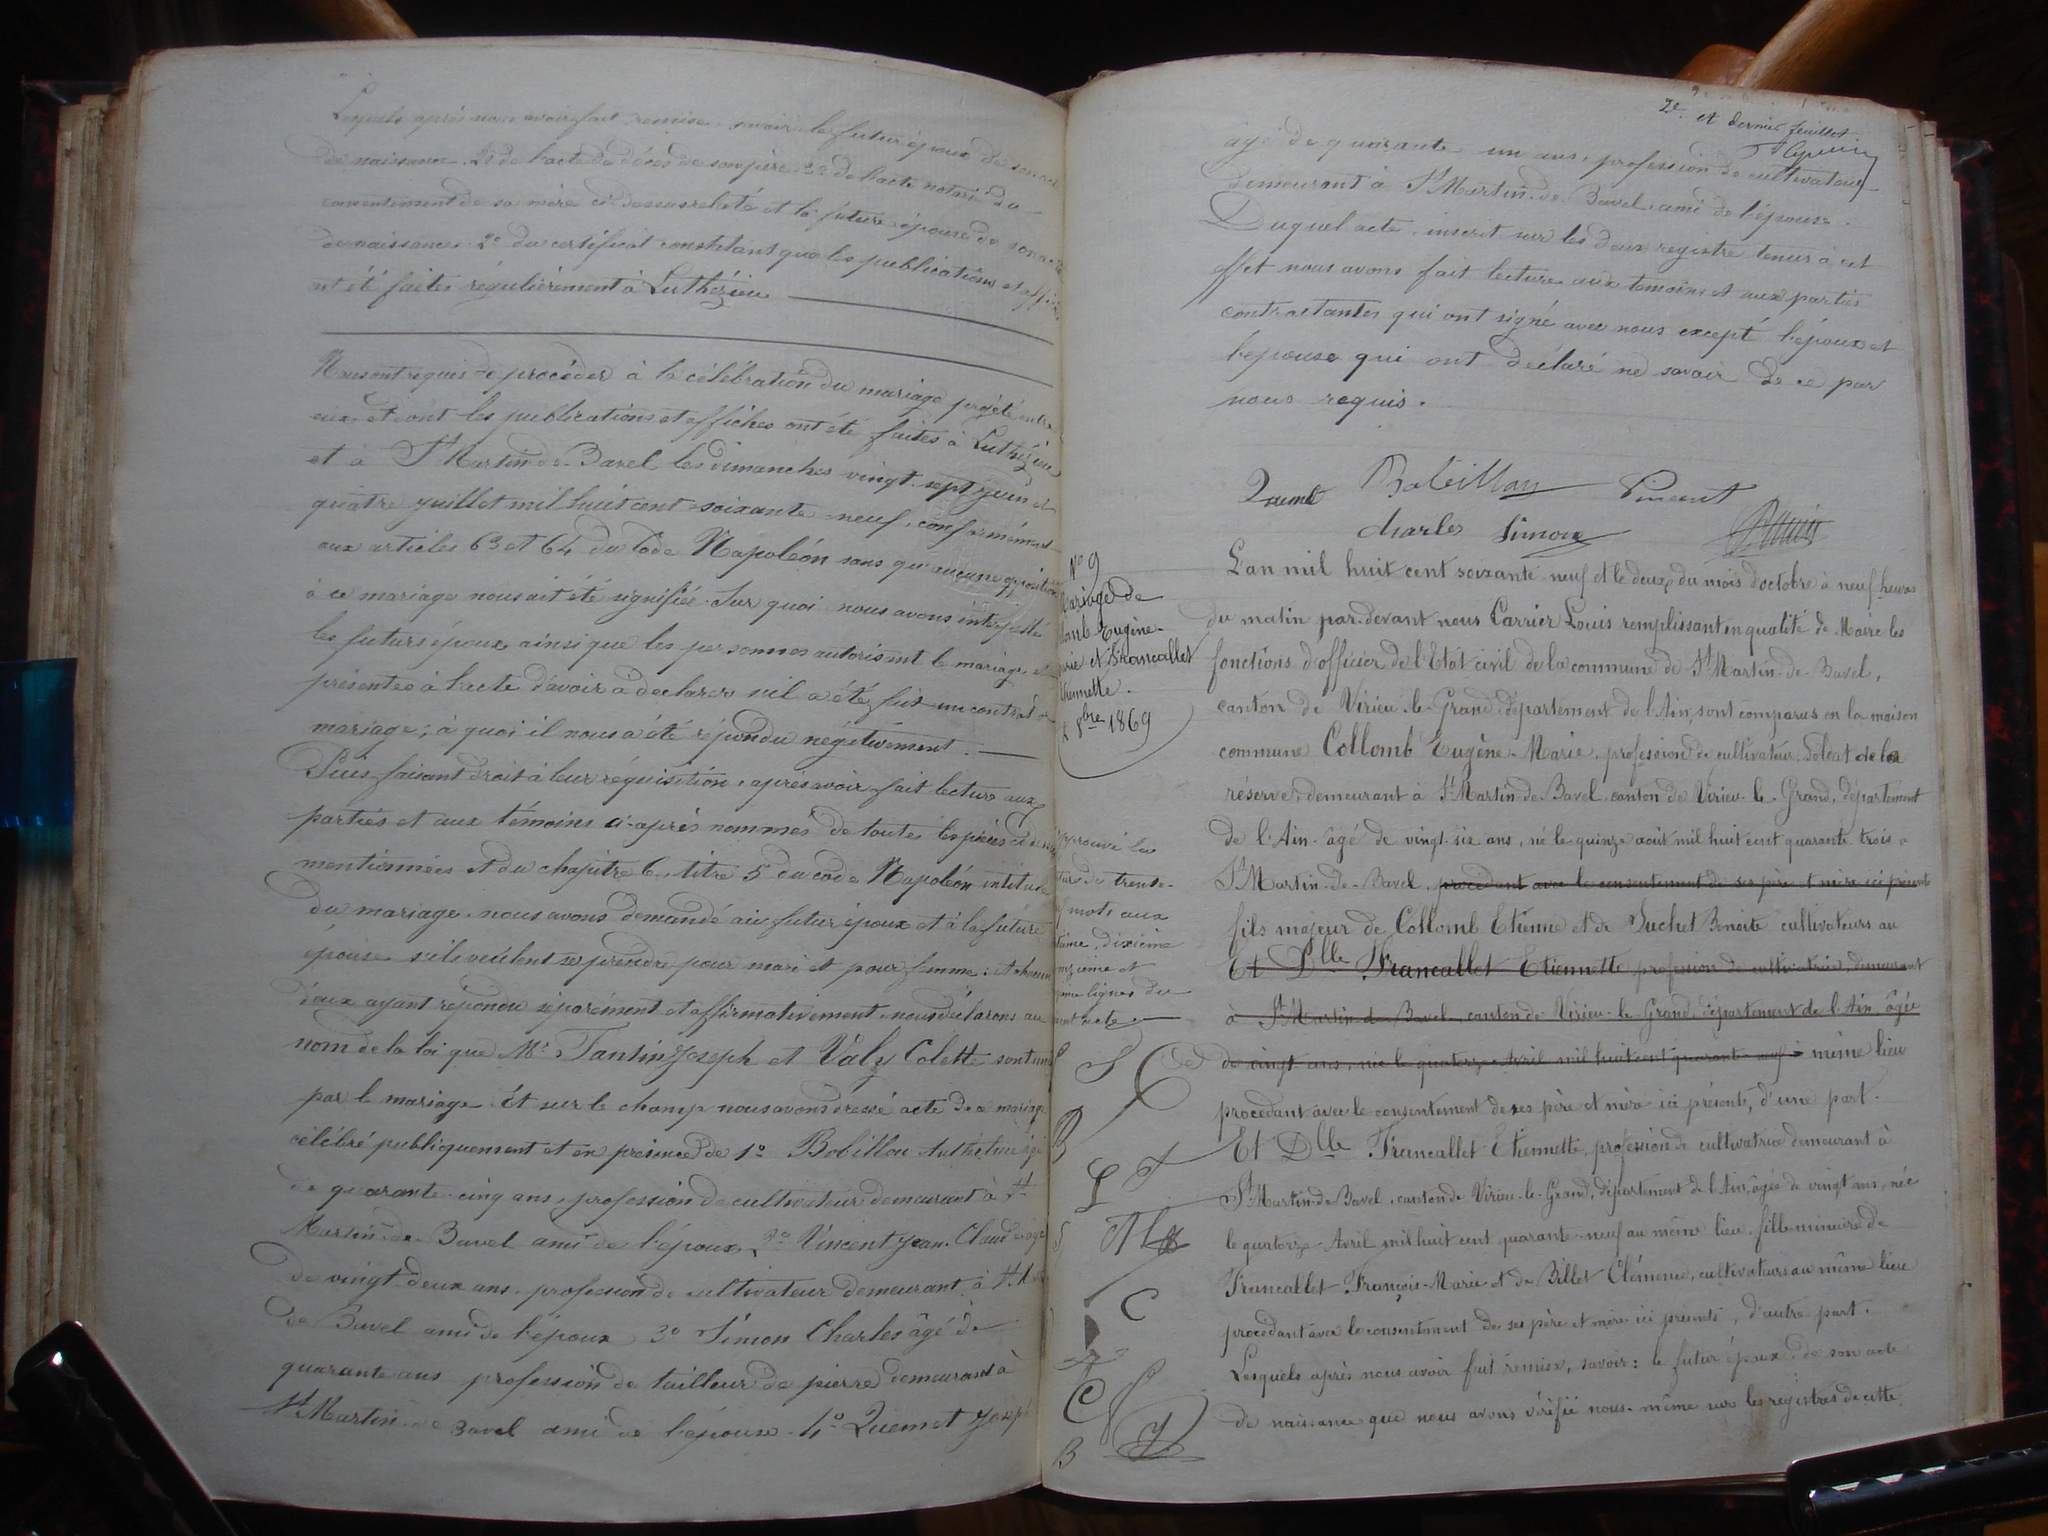 Lesquels après nous avoir fait remise, savoir: le futur époux de son acte
de naissance 2° de l'acte de décès de son père 3° de l'acte notarié du
consentement de sa mère ci-dessus relaté et la future épouse de son acte
de naissance 2° du certificat constatant que les publications et affiches
ont été faites régulièrement à Luthézieu
Nous ont requis de procéder à la célébration du mariage projeté entre
eux, et dont les publications et affiches ont été faites à Luthézieu
et à St Martin-de-Bavel les dimanches vingt-sept juin et
quatre juillet mil huit cent soixante-neuf, conformément
aux articles 63 et 64 du Code Napoléon sans qu'aucune opposition
à ce mariage nous ait été signifiée. Sur quoi nous avons interpellé
les futurs époux ainsi que les personnes autorisant le mariage et
présentes à l'acte d'avoir à déclarer s'il a été fait un contrat de
mariage; à quoi il nous a été répondu négativement.
Puis faisant droit à leur réquisition, après avoir fait lecture aux
parties et aux témoins ci-après nommés de toutes les pièces ci-dessus
mentionnées et du chapitre 6, titre 5 du code Napoléon intitulé
du mariage, nous avons demandé au futur époux et à la future
épouse s'ils veulent se prendre pour mari et pour femme: et chacun
d'eux ayant répondu séparément et affirmativement, nous déclarons au
nom de la loi que Mr. Tantin Joseph et Valy Colette sont unis
par le mariage. Et sur le champ nous avons dressé acte de ce mariage
célébré publiquement et en présence de 1° Bobillon Anthelme âgé
de quarante-cinq ans, profession de cultivateur demeurant à St
Martin-de-Bavel ami de l'époux, 2° Vincent Jean-Claude âgé
de vingt-deux ans, profession de cultivateur demeurant à St Martin
de Bavel ami de l'époux 3° Simon Charles âgé de
quarante ans profession de tailleur de pierre demeurant à
St Martin-de Bavel ami de l'épouse. 4° Quemet Joseph
2e et dernier feuillet.
âgé de quarante-un ans, profession de cultivateur
demeurant à St Martin-de-Bavel ami de l'épouse.
Duquel acte, inscrit sur les deux registre tenus à cet
effet nous avons fait lecture aux temoins et aux parties
contractantes qui ont signé avec nous excepté l'époux et
l'épouse qui ont déclaré ne savoir de ce par
nous requis.
Bobillon Vincent
Charles Simon
N° 9
Mariage de
Collomb Eugène-
Marie et Francallet
Etiennette.
2 8bre 1869
L'an mil huit cent soixante neuf et le deux du mois d'octobre à neuf heures
du matin par-devant nous Carrier Louis remplissant en qualité de Maire les
fonctions d'officier de l'Etat civil de la commune de St Martin-de-Bavel,
canton de Virieu-le-Grand, département de l'Ain, sont comparus en la maison
commune Collomb Eugène-Marie, profession de cultivateur, Soldat de la
réserve, demeurant à St-Martin-de-Bavel, canton de Virieu-le-Grand, département
de l'Ain, âgé de vingt-six ans, né le quinze août mil huit cent quarante-trois à
St Martin-de-Bavel, procédant avec le consentement de ses père et mère ici présents
fils majeur de Collomb Etienne et de Suchet Benoite cultivateurs au
Et Dlle Francallet Etiennette profession de cultivatrice, demeurant
à St Martin-de-Bavel, canton de Virieu-le-Grand, département de l'Ain, âgée
de vingt ans, née le quatorze Avril mil huit cent quarante-neuf à même lieu
procédant avec le consentement de ses père et mère ici présents, d'une part.
Et Dlle Francallet Etiennette, profession de cultivatrice demeurant à
St Martin-de-Bavel, canton de Virieu-le-Grand, département de l'Ain, âgée de vingt ans, née
le quatorze Avril mil huit cent quarante-neuf au même lieu, fille mineure de
Francallet François-Marie et de Billet Clémence, cultivateurs au même lieu
procédant avec le consentement de ses père et mère ici présents, d'autre part.
Lesquels après nous avoir fait remise, savoir: le futur époux de son acte
de naissance que nous avons vérifié nous-même sur les registres de cette
approuvé la
rature de trente-
mots aux
dixième
onzième et
lignes du
acte